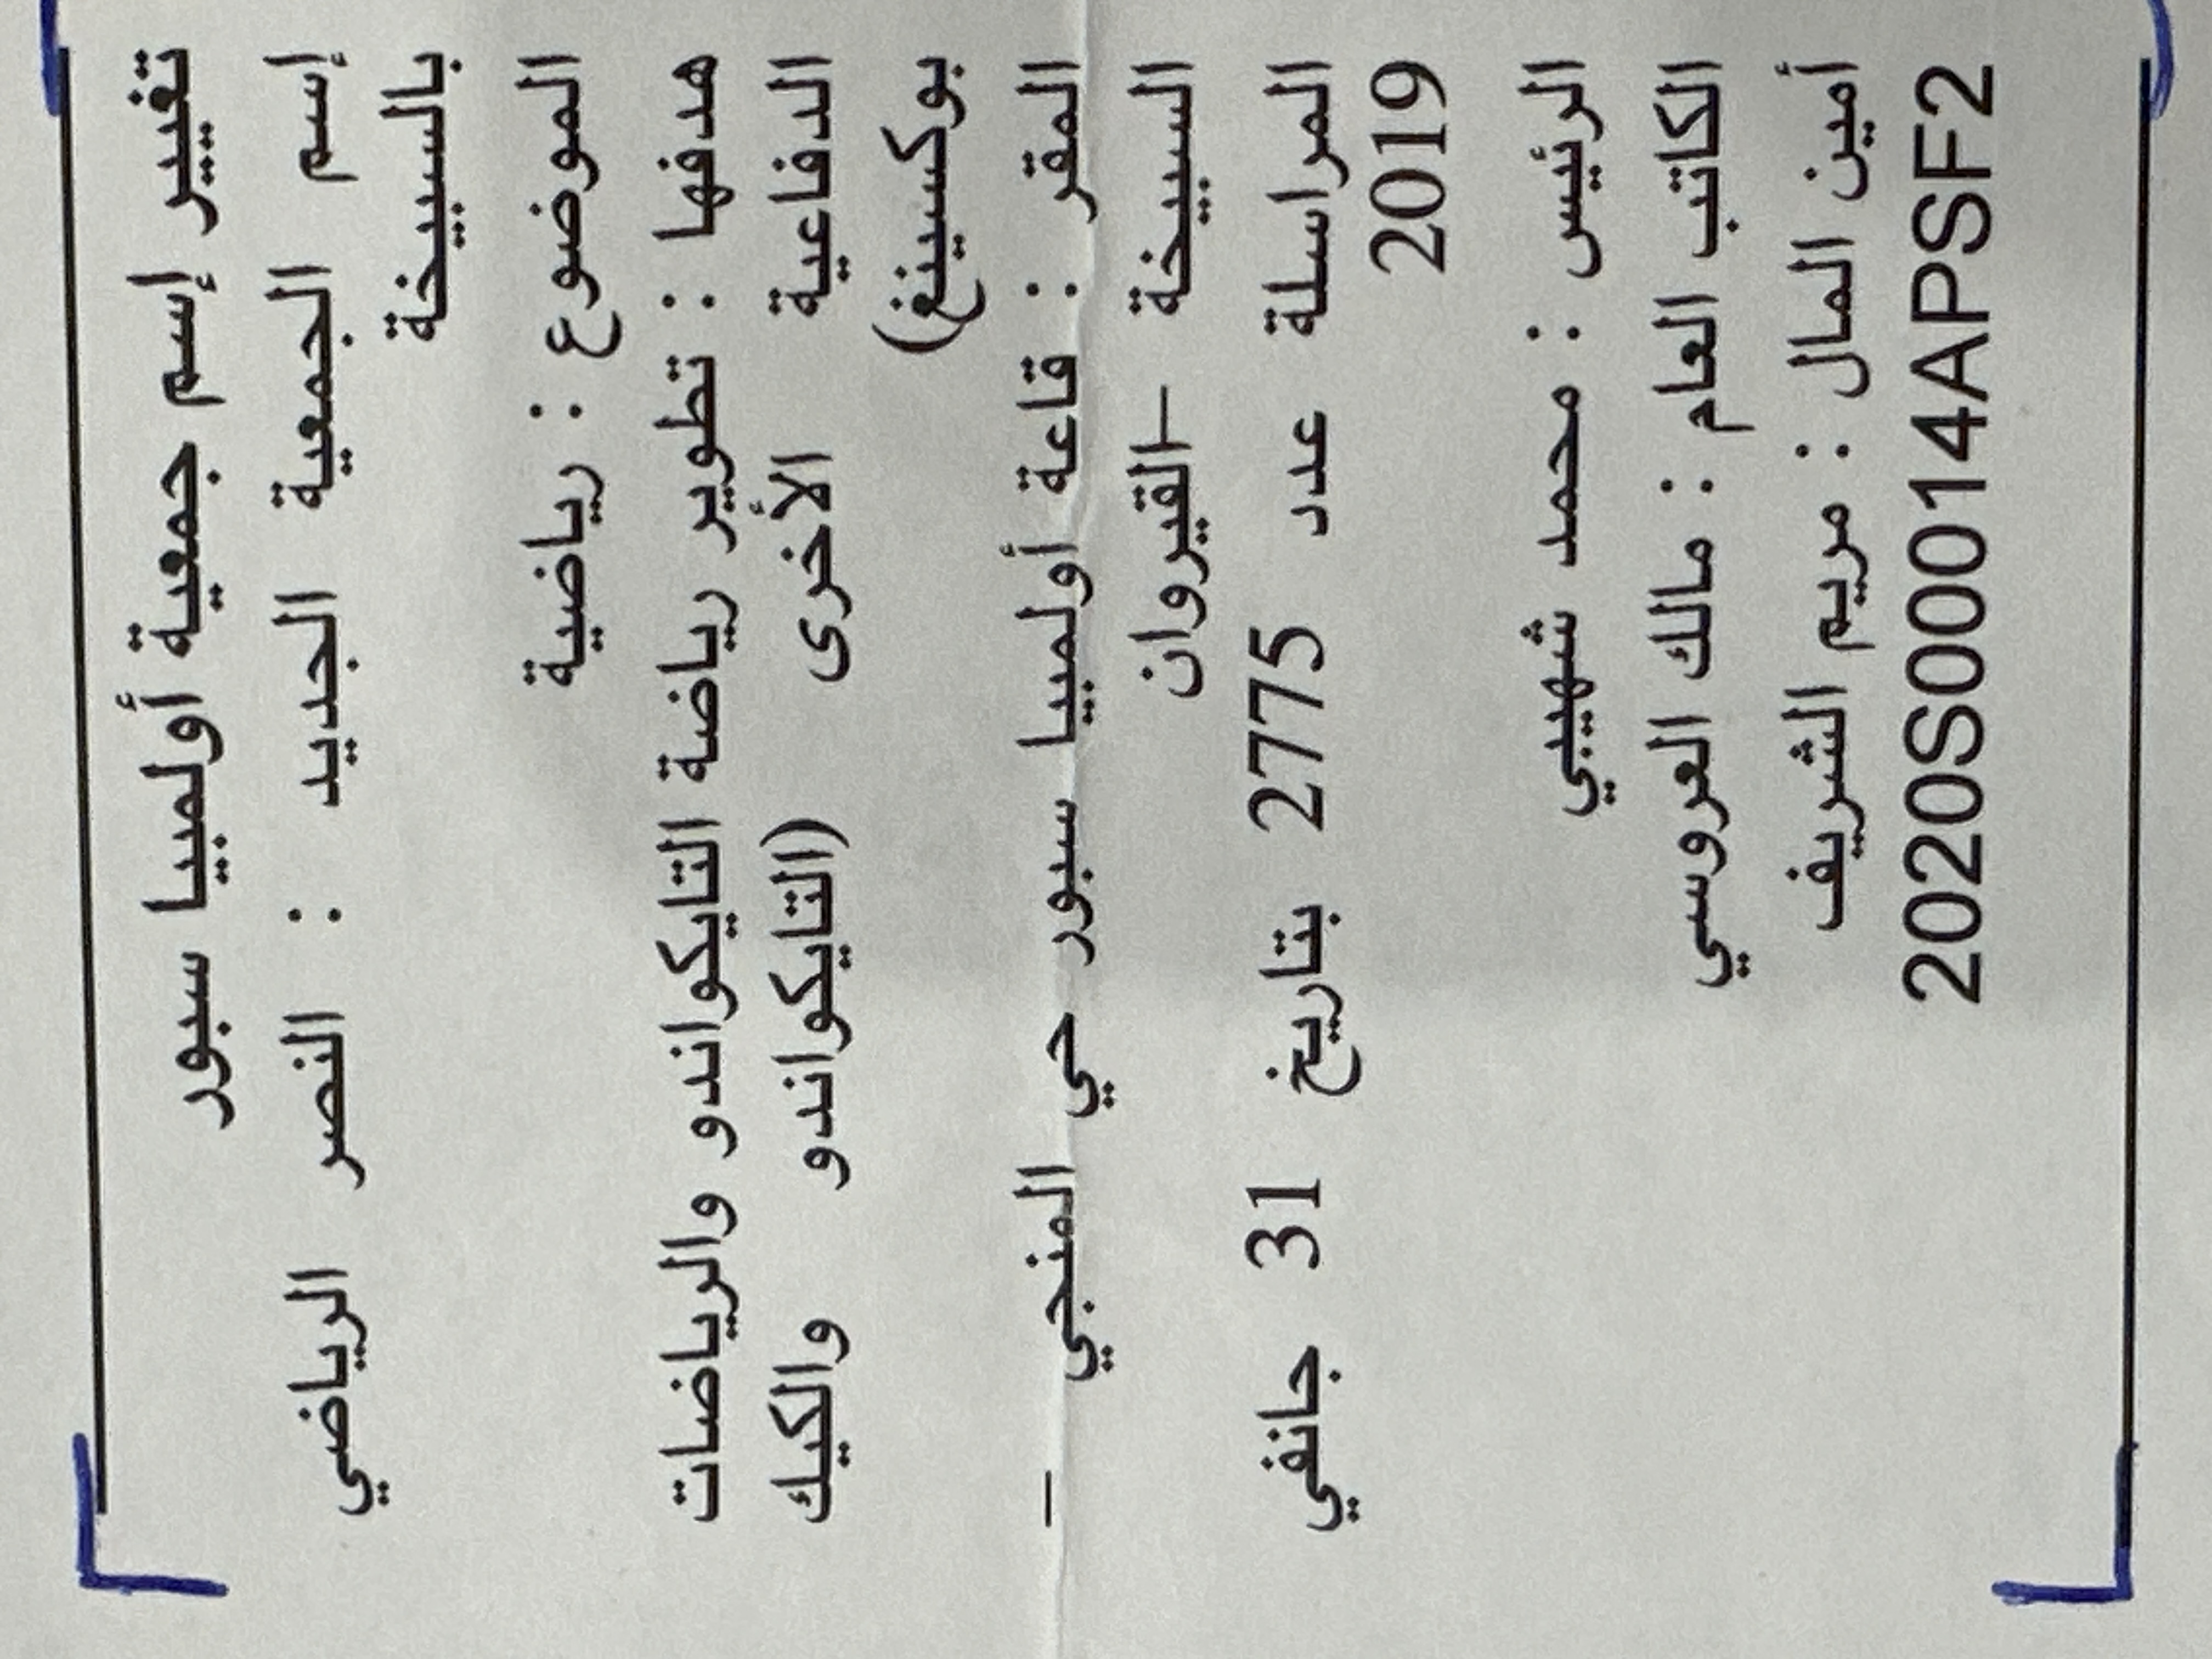 تغيير إسم جمعية أولمبيا سبور
إسم الجمعية الجديد : النصر الرياضي
بالسبيخة
الموضوع : رياضية
هدفها : تطوير رياضة التايكواندو والرياضات
الدفاعية الأخرى (التايكواندو والكيك
بوكسينغ)
المقر : قاعة أولمبيا سبور حي المنجي –
السبيخة –القيروان
المراسلة عدد 2775 بتاريخ 31 جانفي
2019
الرئيس : محمد شهيبي
الكاتب العام : مالك العروسي
أمين المال : مريم الشريف
2020S00014APSF2